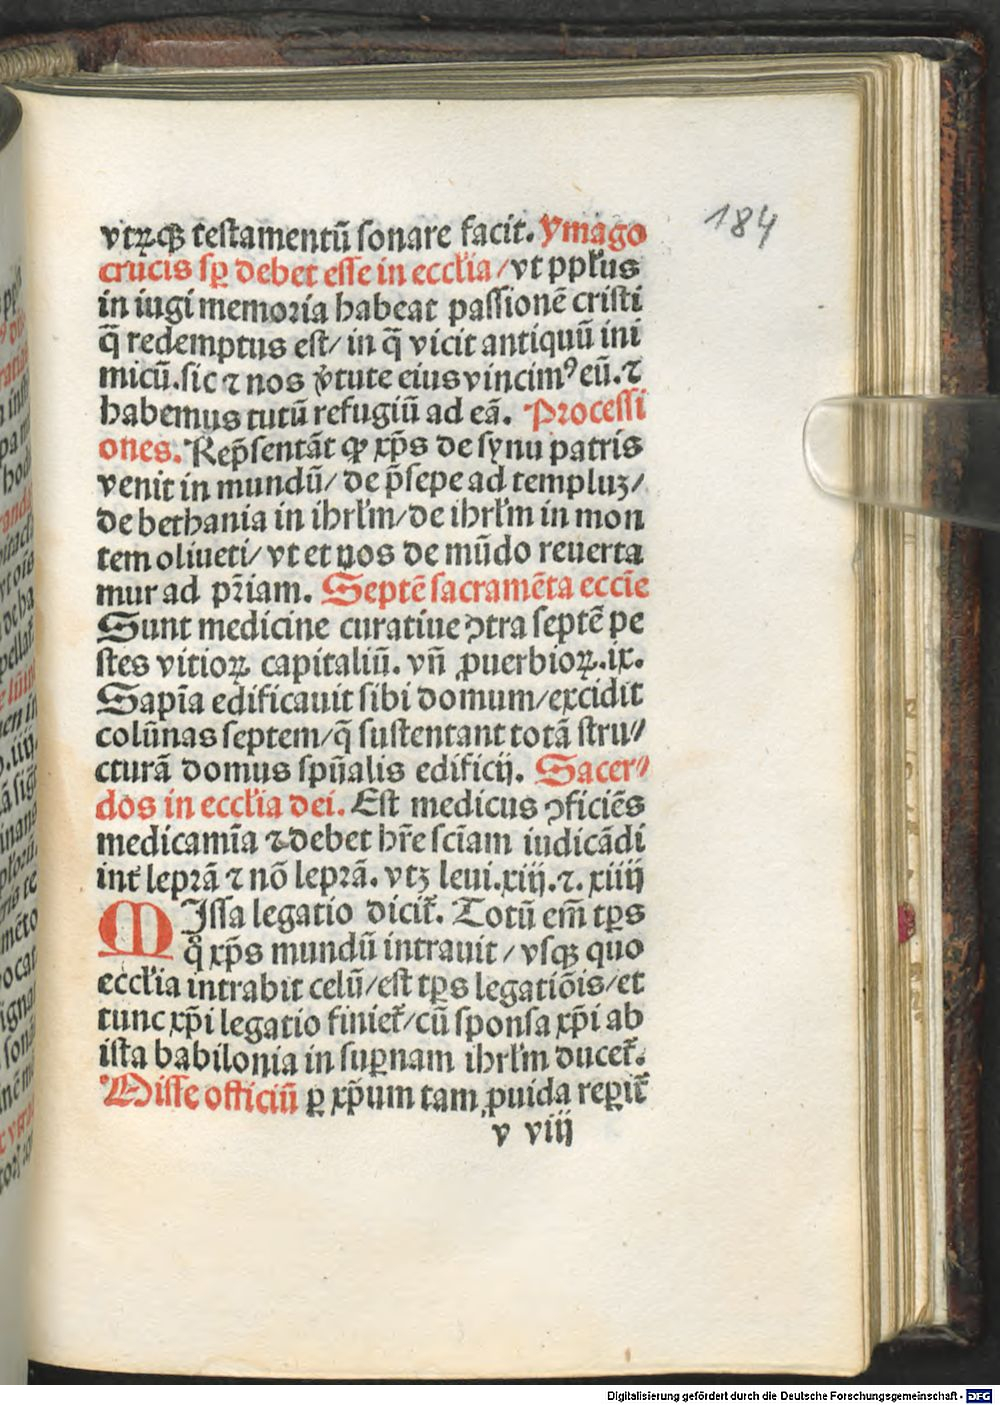 184
vtrꝫqꝫ testamentū ſonare facit. Ymago
crucis ſꝑ debet eſſe in eccl'ia/vt ppl'us
in iugi memoꝛia habeat paſſionē criſti
q̄ redemptus eſt/ in q̄ vicit antiquū ini
micū.ſic ⁊ nos v̓tute eius vincimꝰ eū.⁊
habemus tutū refugiū ad eā. Proceſſi
ones. Rep̄ſentāt ꝙ xp̄s de ſynu patris
venit in mundū/ de p̄ſepe ad templuꝫ/
de bethania in ihrl'm/de ihrl'm in mon
tem oliueti/ vt et nos de mūdo reuerta
mur ad pr̄iam. Septē ſacramēta eccīe
Sunt medicine curatiue ꝯtra ſeptē pe
ſtes vitioꝝ capitaliū. vn̄ ꝓuerbioꝝ.ix.
Sapīa edificauit ſibi domum/excidit
colūnas ſeptem/q̄ ſuſtentant totā ſtru⸗
cturā domus ſpūalis edificij. Sacer⸗
dos in eccl'ia dei. Eſt medicus ꝯficiēs
medicamīa ⁊ debet hr̄e ſcīam iudicādi
int̓ lepꝛā ⁊ nō lepꝛā. vtꝫ leui.xiij.⁊.xiiij
MJſſa legatio dicit̓. Totū em̄ tp̄s
qͦ xp̄s mundū intrauit/ vſqꝫ quo
eccl'ia intrabit celū/eſt tp̄s legatiōis/et
tunc xp̄i legatio finiet̓/cū ſponſa xp̄i ab
iſta babilonia in ſuꝑnam ihrl'm ducet̓.
Miſſe officiū ꝑ xp̄um tam ꝓuida reꝑit̓
v viij
Digitalisierung gefördert durch die Deutsche Forschungsgemeinschaft - DFG